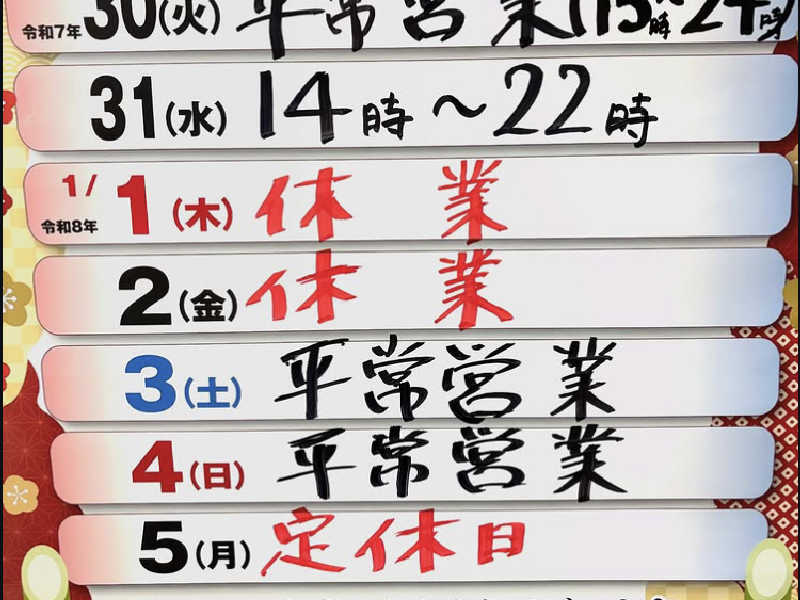 令和7年 30(火) 平常営業(15時~24時)
31(水) 14時～22時
1/1(木) 休 業
令和8年
2(金) 休 業
3(土) 平常営業
4(日) 平常営業
5(月) 定休日